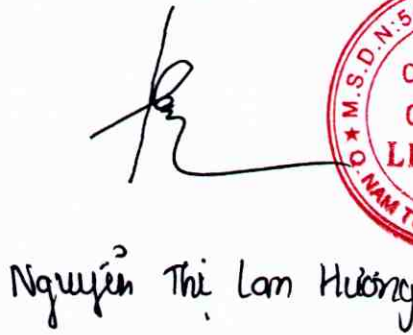 ★ M.S.D.N:5
C
C
LI
Q.NAM T
Nguyễn Thị Lam Hương